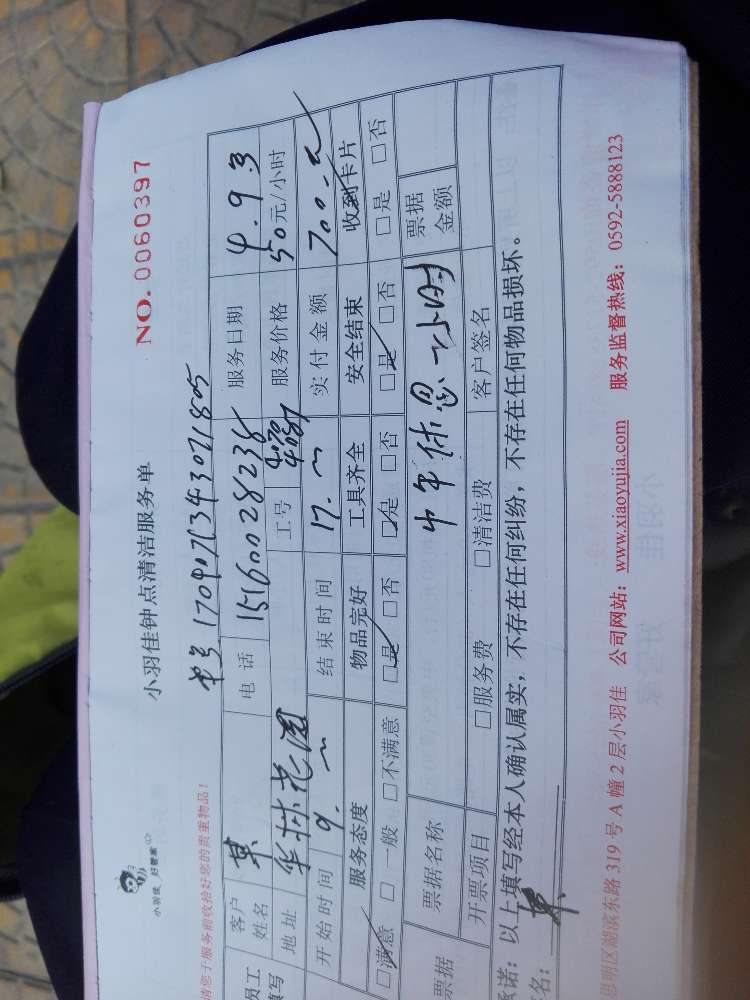 小羽佳 好管家
小羽佳钟点清洁服务单
NO. 0060397
请您于服务前收拾好您的贵重物品！
单号 17090713430721805
员工
填写
客户
姓名
电 话 15160028238
服务日期 4.9.3
地址 华林花园
工号
服务价格 50元/小时
开始时间 9.
结束时间 17.
实付金额 700.
服务态度 物品完好 工具齐全 安全结束 收到卡片
□满意 □一般 □不满意 □是 □否 □是 □否 □是 □否 □是 □否
中午休息一小时
票据
票据名称
票据
金额
开票项目 □服务费 □清洁费 客户签名
承诺：以上填写经本人确认属实，不存在任何纠纷，不存在任何物品损坏。
名：
思明区湖滨东路 319 号 A 幢 2 层小羽佳 公司网站：www.xiaoyujia.com 服务监督热线：0592-5888123